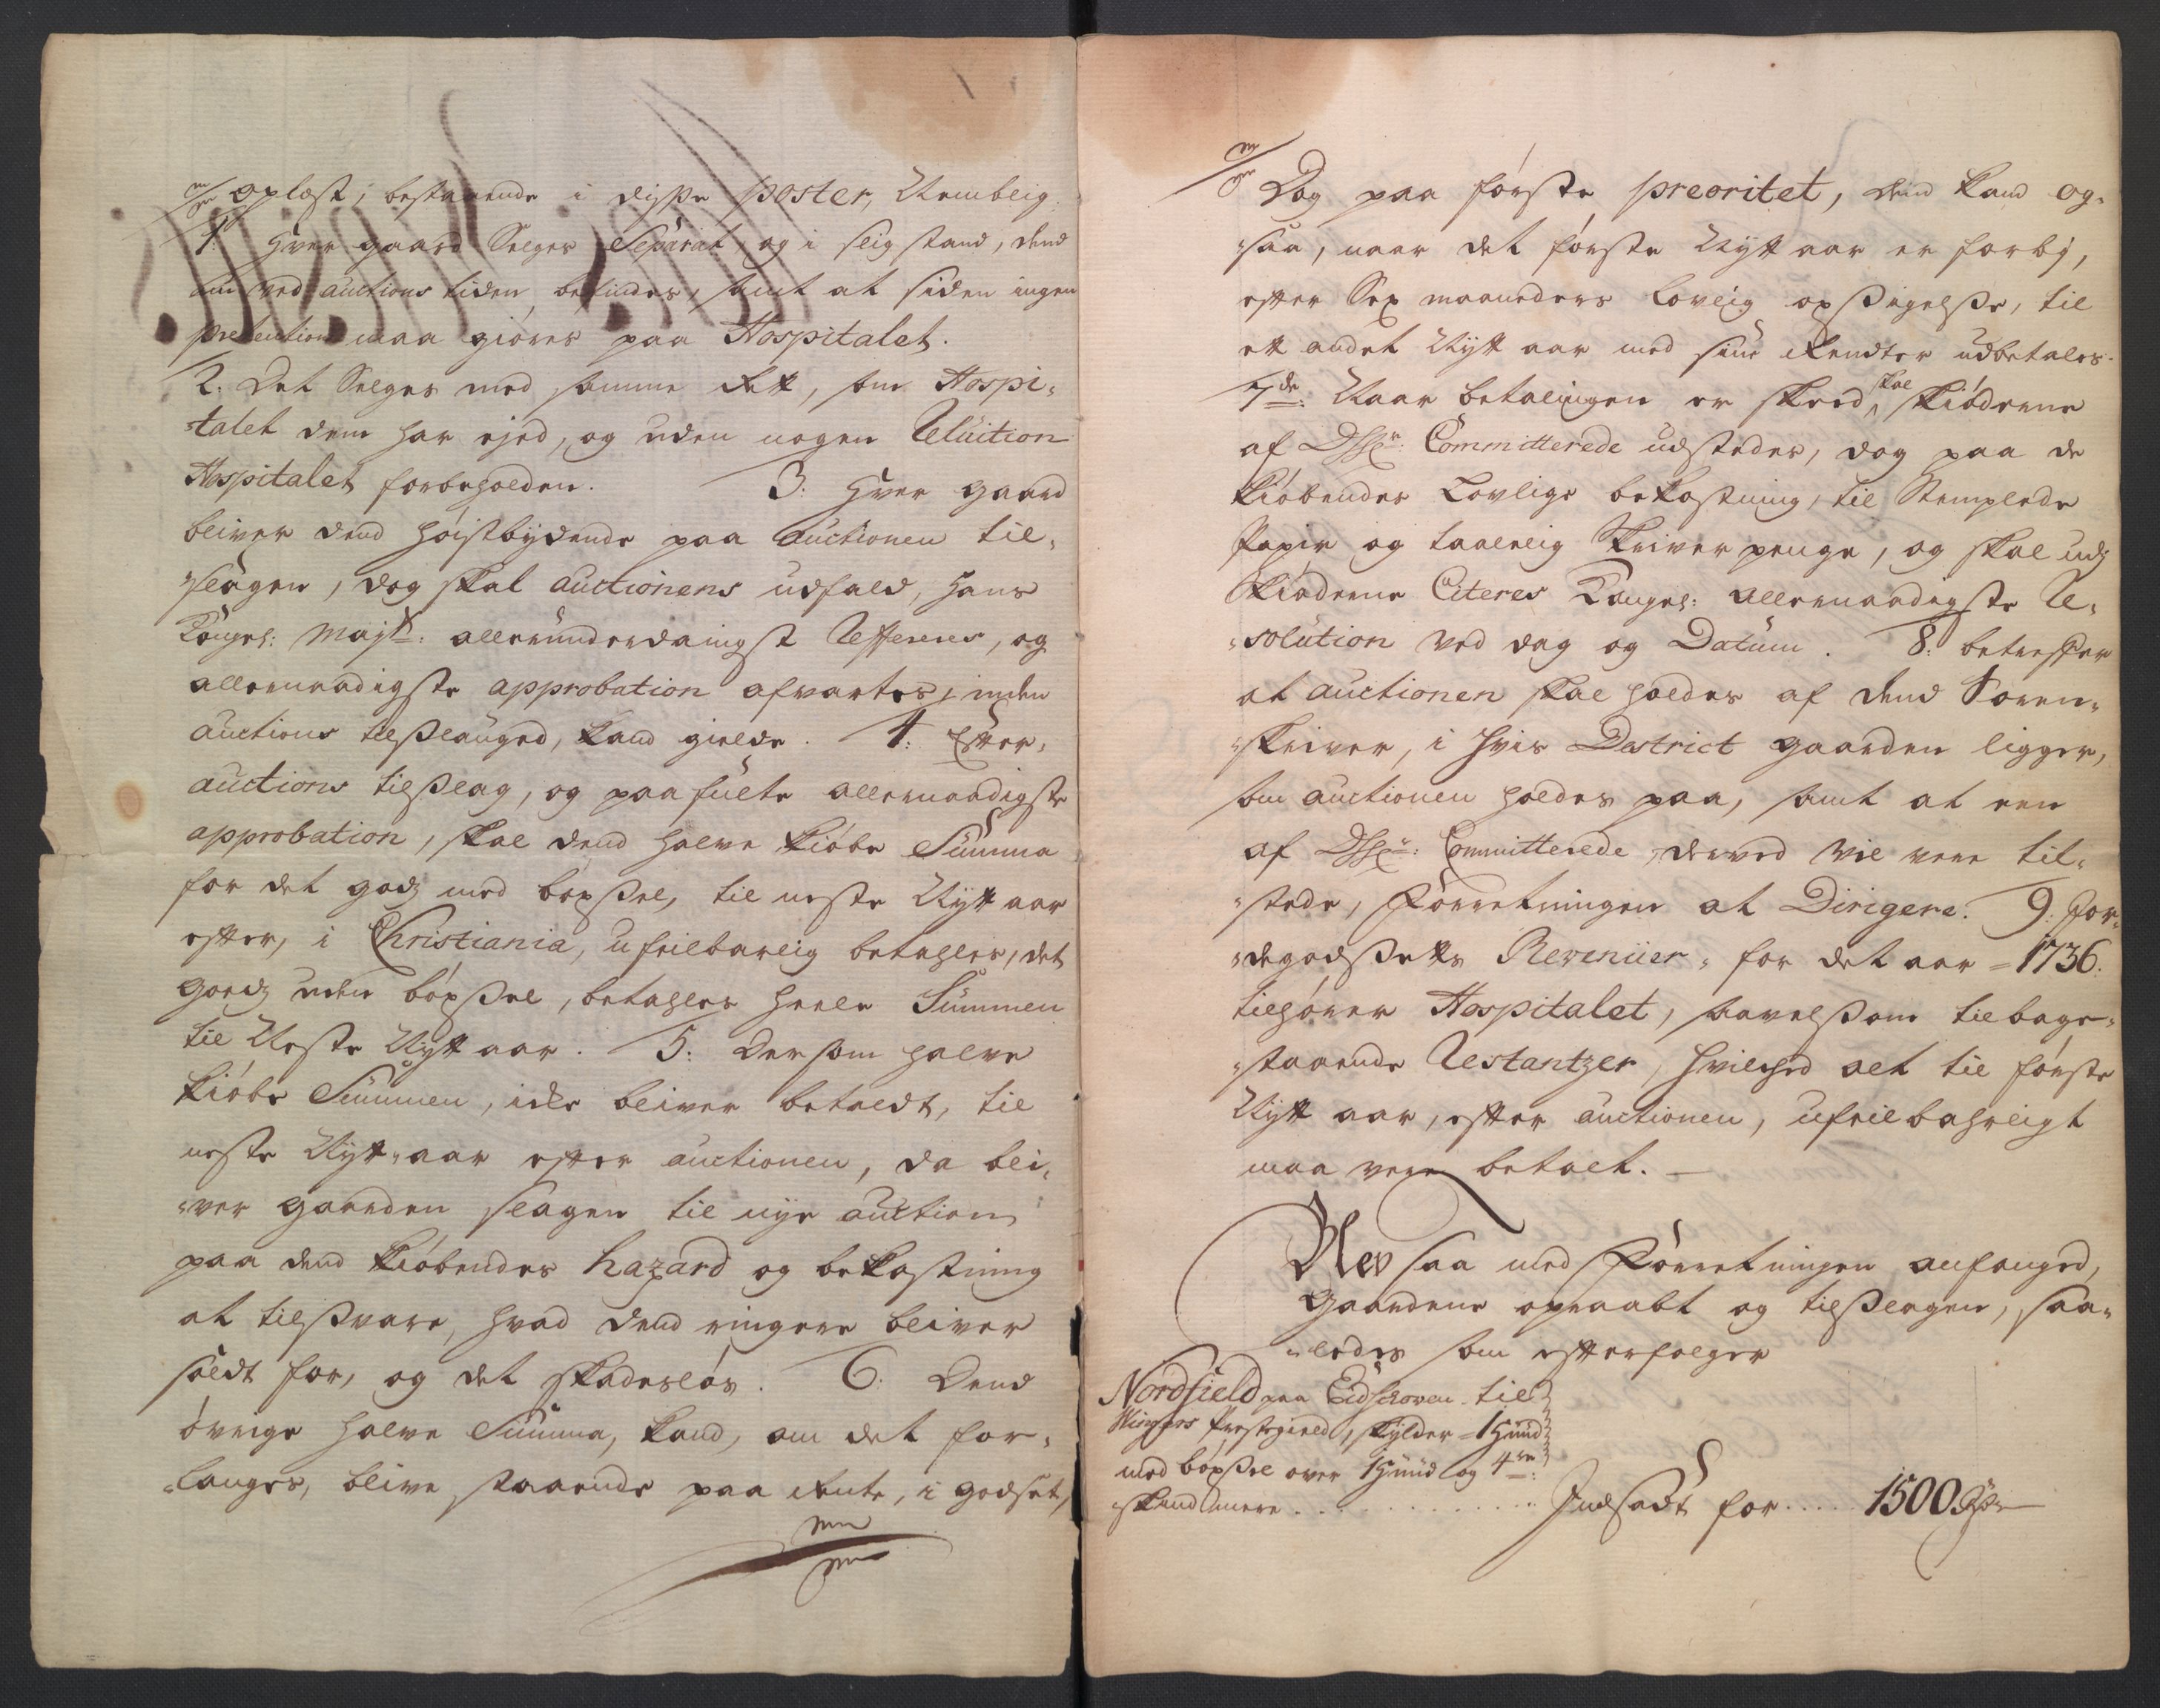 oplæst, bestaaende i disße poster, Nemblig:
1: Hver gaard Selges Separat, og i slig stand, dend
om ved auctions tiden befindes, samt at siden ingen
pretention maa giøres paa Hospitalet.
2. Det Selges med samme Rett, som Hospi-
talet dem har ejed, og uden nogen Eviction
Hospitalet forbeholden. 3: Hver gaard
bliver dend højstbydende paa Auctionen til-
slagen, dog skal auctionens udfald, Hans
Kongel: Majt: allerunderdanigst Refferes, og
allernaadigste approbation afvartes, inden
auctions tilßlauged, kand gielde. 4: Efter
auctions tilßlag, og paafulte allernaadigste
approbation, skal dend halve Kiøbe Summa
for det godz med böxßel, til neste Nytt aar
efter, i Christiania, ufeilbarlig betahles, det
Goedz uden böxßel, betahles heele Summen
til Neste Nytt aar. 5: Dersom halve
Kiøbe Summen, icke bliver betaldt, til
neste Nytt-aar efter auctionen, da bli-
ver gaarden slagen til nye auction
paa dend Kiøbendes hazard og bekostning
at tilßvare, hvad dend ringere bliver
soldt for, og det skadesløs. 6: Dend
øvrige halve Summa, kand, om det for-
langes, blive staaende paa Rente, i godset,
Dog paa første preoritet, dend kand og-
saa, naar det første Nytt aar er forbj,
efter Sex maaneders Lovlig opßigelße, til
ett andet Nytt aar med sine Rendter udbetales.
7de: Naar betalingen er skeed, skal skiøderne
af Dhrr: Committerede udstedes, dog paa de
Kiøbendes Lovlige bekostning, til Stemplede
Papir og taalelig Skriver penge, og skal udj
Skiøderne Citeres Kongel: allernaadigste Re-
solution ved dag og Datum. 8: betreffer
at auctionen skal holdes af dend Soren-
skriver, i hvis District gaarden ligger,
som auctionen holdes paa, samt at een
af Dhrr: Committerede, derved vil vere til-
stede, Forretningen at Dirigere. 9: Jor-
degodßetts Revenüer, for det aar 1736:
tilhører Hospitalet, saavelßom tilbage-
staaende Restantzer, hvilched alt til første
Nytt aar, efter auctionen, ufeilbahrligt
maa vere betalt.
Blev saa med Forretningen anfanged,
Gaardene opraabt og tilßlagen, saa-
ledes som efterfølger
Nordfield paa Eidschoven til
Wingers Prestegield, skylder 1 Hund
med böxßel over 1 Hund og 4re
skind mere . . . . . . Indsadt for . . . . 1500 Rdr